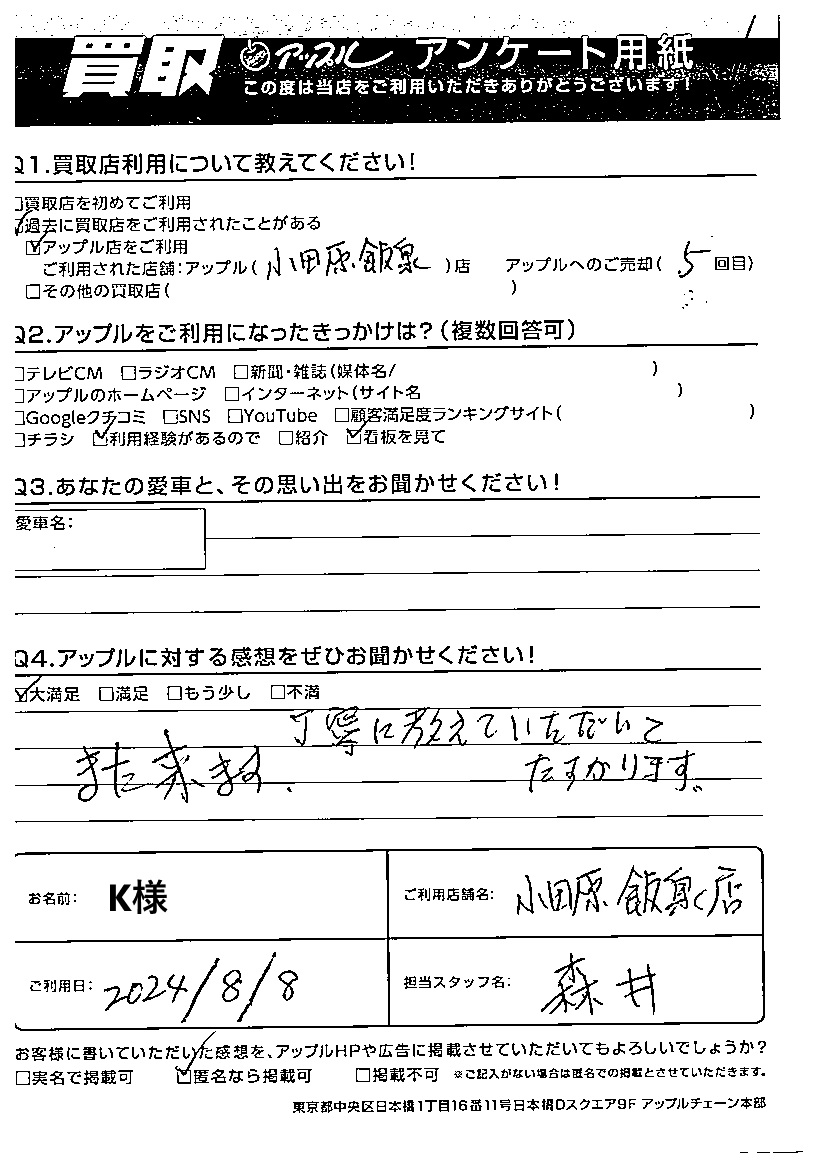 買取 アップル アンケート用紙
この度は当店をご利用いただきありがとうございます!
Q1.買取店利用について教えてください!
□買取店を初めてご利用
☑過去に買取店をご利用されたことがある
☑アップル店をご利用
ご利用された店舗:アップル(小田原飯泉)店 アップルへのご売却(5回目)
□その他の買取店( )
Q2.アップルをご利用になったきっかけは?(複数回答可)
□テレビCM □ラジオCM □新聞・雑誌(媒体名/ )
□アップルのホームページ □インターネット(サイト名 )
□Googleクチコミ □SNS □YouTube □顧客満足度ランキングサイト( )
□チラシ ☑利用経験があるので □紹介 ☑看板を見て
Q3.あなたの愛車と、その思い出をお聞かせください!
愛車名:
Q4.アップルに対する感想をぜひお聞かせください!
☑大満足 □満足 □もう少し □不満
丁寧に教えていただいて
たすかります。
また来ます.
お名前: K様
ご利用店舗名: 小田原飯泉店
ご利用日: 2024/8/8
担当スタッフ名: 森井
お客様に書いていただいた感想を、アップルHPや広告に掲載させていただいてもよろしいでしょうか?
□実名で掲載可 ☑匿名なら掲載可 □掲載不可 ※ご記入がない場合は匿名での掲載とさせていただきます。
東京都中央区日本橋1丁目16番11号日本橋Dスクエア9F アップルチェーン本部